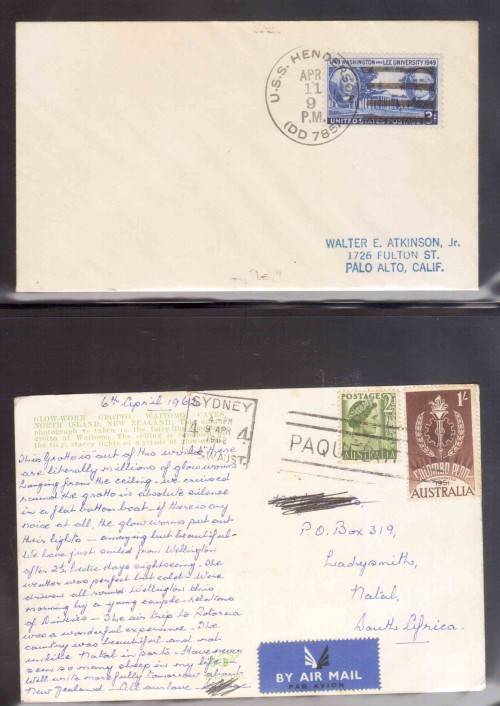 U.S.S. HENDERSON
APR
11
9
P.M.
(DD 785)
WASHINGTON AND LEE UNIVERSITY 1949
UNITED STATES POSTAGE 3¢
WALTER E. ATKINSON, Jr.
1726 FULTON ST.
PALO ALTO, CALIF.
6th April 1962
GLOW-WORM GROTTO, WAITOMO CAVES,
NORTH ISLAND, NEW ZEALAND.
photograph is taken in the
grotto at Waitomo. The ceiling is
the tiny, starry lights of myriads of
SYDNEY
4 PM
9 APR
1962
AUST.
POSTAGE
2D
AUSTRALIA
1/-
COLOMBO PLAN
1951
AUSTRALIA
PAQU
This Grotto is "out of this world" there
are literally millions of glow worms
hanging from the ceiling - we cruised
round the grotto in absolute silence
in a flat bottom boat - if there is any
noise at all, the glow worms put out
their lights - amazing but beautiful.
We have just sailed from Wellington
after 2½ hectic days sightseeing. The
weather was perfect but cold. Were
driven all round Wellington this
morning by a young couple - relations
of
The air trip to Rotorua
was a wonderful experience - The
country was beautiful and not
unlike Natal in parts - Have never
seen so many sheep in my life
Will write more fully tomorrow about
New Zealand - All our love
P.O. Box 319,
Ladysmith,
Natal,
South Africa.
BY AIR MAIL
PAR AVION